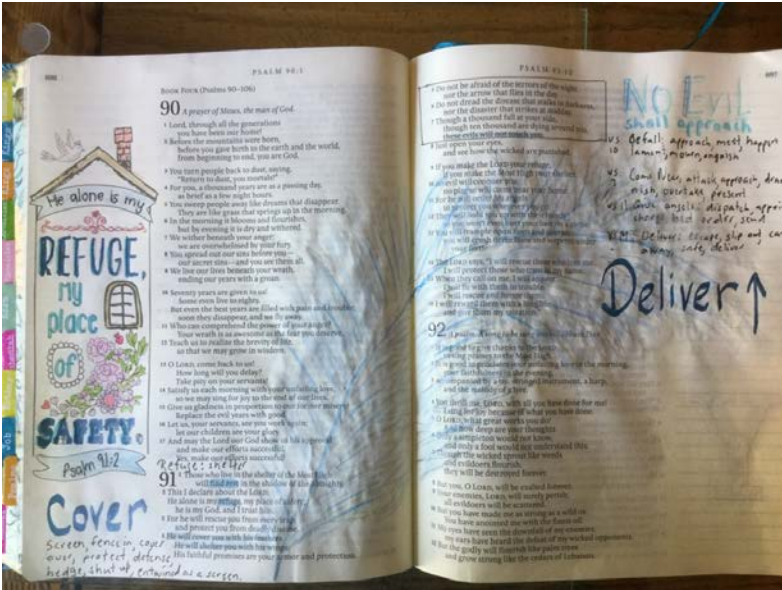 PSALM 90:1
BOOK FOUR (Psalms 90–106)
90 A prayer of Moses, the man of God.
1 Lord, through all the generations
you have been our home!
2 Before the mountains were born,
before you gave birth to the earth and the world,
from beginning to end, you are God.
3 You turn people back to dust, saying,
"Return to dust, you mortals!"
4 For you, a thousand years are as a passing day,
as brief as a few night hours.
5 You sweep people away like dreams that disappear.
They are like grass that springs up in the morning.
6 In the morning it blooms and flourishes,
but by evening it is dry and withered.
7 We wither beneath your anger;
we are overwhelmed by your fury.
8 You spread out our sins before you—
our secret sins—and you see them all.
9 We live our lives beneath your wrath,
ending our years with a groan.
10 Seventy years are given to us!
Some even live to eighty.
But even the best years are filled with pain and trouble;
soon they disappear, and we fly away.
11 Who can comprehend the power of your anger?
Your wrath is as awesome as the fear you deserve.
12 Teach us to realize the brevity of life,
so that we may grow in wisdom.
13 O LORD, come back to us!
How long will you delay?
Take pity on your servants!
14 Satisfy us each morning with your unfailing love,
so we may sing for joy to the end of our lives.
15 Give us gladness in proportion to our former misery!
Replace the evil years with good.
16 Let us, your servants, see you work again;
let our children see your glory.
17 And may the Lord our God show us his approval
and make our efforts successful.
Yes, make our efforts successful!
Refuge: shelter
91 1 Those who live in the shelter of the Most High
will find rest in the shadow of the Almighty.
2 This I declare about the LORD:
He alone is my refuge, my place of safety;
he is my God, and I trust him.
3 For he will rescue you from every trap
and protect you from deadly disease.
4 He will cover you with his feathers.
He will shelter you with his wings.
His faithful promises are your armor and protection.
He alone is my
REFUGE,
my
place
of
SAFETY.
Psalm 91:2
Cover
screen, fence in, cover
over, protect, defense,
hedge, shut up, entwined as a screen.
Kings
Job
5 Do not be afraid of the terrors of the night,
nor the arrow that flies in the day.
6 Do not dread the disease that stalks in darkness,
nor the disaster that strikes at midday.
7 Though a thousand fall at your side,
though ten thousand are dying around you,
these evils will not touch you.
8 Just open your eyes,
and see how the wicked are punished.
9 If you make the LORD your refuge,
if you make the Most High your shelter,
10 no evil will conquer you;
14 The LORD says, "I will rescue those who love me.
I will protect those who trust in my name.
15 When they call on me, I will answer;
I will be with them in trouble.
I will rescue and honor them.
16 I will reward them with a long life
and give them my salvation."
92
1 It is good to give thanks to the LORD,
to sing praises to the Most High.
2 It is good to proclaim your unfailing love in the morning,
your faithfulness in the evening,
3 accompanied by a ten-stringed instrument, a harp,
and the melody of a lyre.
4 You thrill me, LORD, with all you have done for me!
I sing for joy because of what you have done.
5 O LORD, what great works you do!
And how deep are your thoughts.
6 Only a simpleton would not know,
and only a fool would not understand this:
7 Though the wicked sprout like weeds
and evildoers flourish,
they will be destroyed forever.
8 But you, O LORD, will be exalted forever.
9 Your enemies, LORD, will surely perish;
all evildoers will be scattered.
10 But you have made me as strong as a wild ox.
You have anointed me with the finest oil.
11 My eyes have seen the downfall of my enemies;
my ears have heard the defeat of my wicked opponents.
12 But the godly will flourish like palm trees
and grow strong like the cedars of Lebanon.
No Evil
shall approach
Befall: approach, meet, happen
attack, approach
overtake, present
angels: dispatch
Deliver: escape, slip out
away, safe, deliver
Deliver